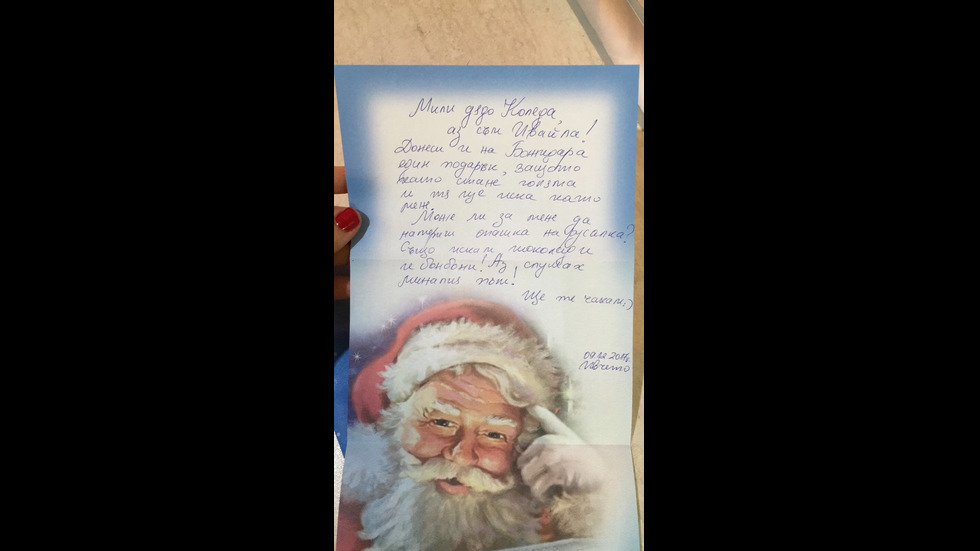 Мили дядо Коледа,
аз съм Ивайла!
Донеси и на Божидара
един подарък, защото
като стане голяма
и тя ще иска като
мен.
Може ли за мене да
намериш опашка на русалка?
Също искам шоколади
и бонбони! Аз слушах
миналия път!
Ще те чакам:)
09.12.2016г.
Ивчето